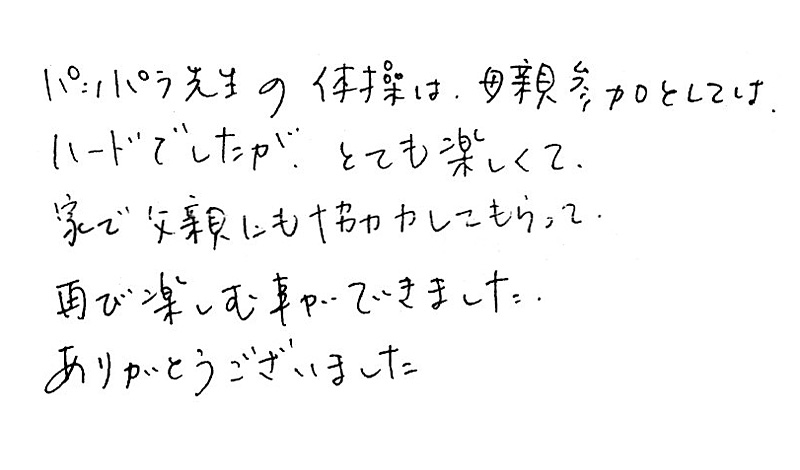 パンパラ先生の体操は、母親参加としては、
ハードでしたが、とても楽しくて、
家で父親にも協力してもらって、
再び楽しむ事ができました。
ありがとうございました